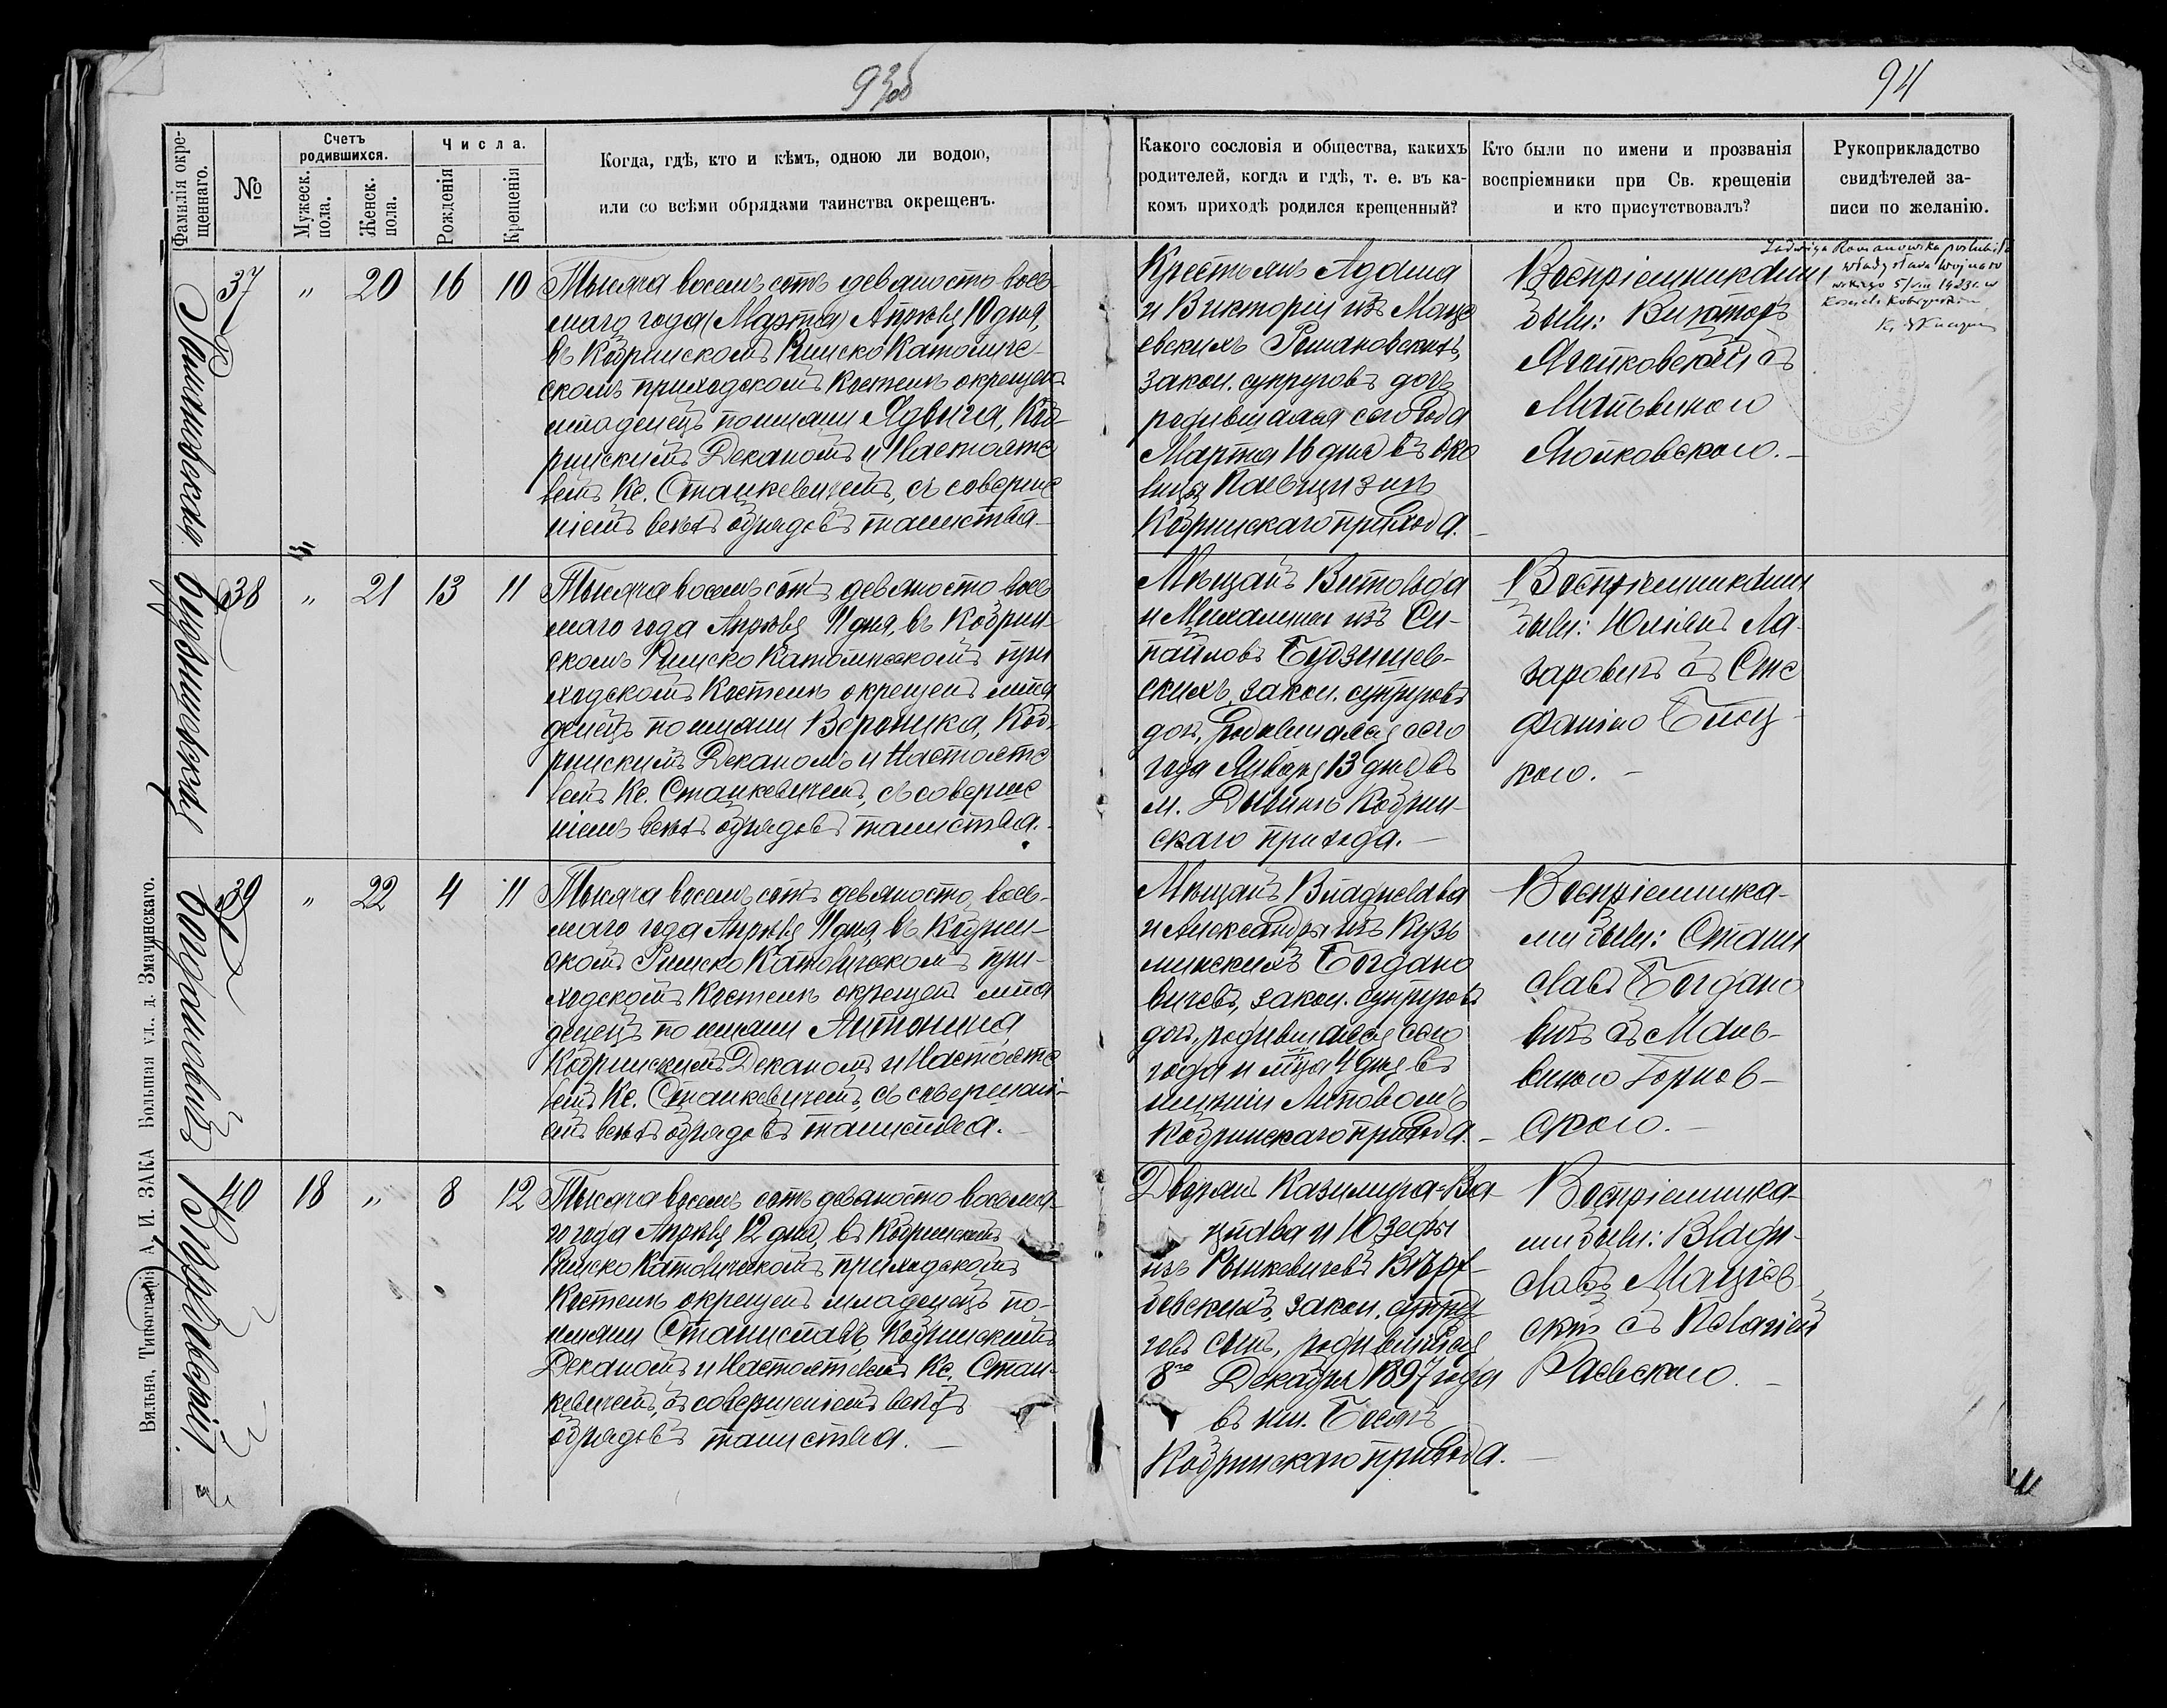 93об
94
Фамилія окре-
щеннаго.
№
Счетъ
родившихся.
Мужеск.
пола.
Женск.
пола.
Числа.
Рожденія
Крещенія
Когда, гдѣ, кто и кѣмъ, одною ли водою,
или со всѣми обрядами таинства окрещенъ.
Какого сословія и общества, какихъ
родителей, когда и гдѣ, т. е. въ ка-
комъ приходѣ родился крещенный?
Кто были по имени и прозванія
воспріемники при Св. крещеніи
и кто присутствовалъ?
Рукоприкладство
свидѣтелей за-
писи по желанію.
Романовская
37
"
20
16
10
Тысяча восемь сотъ девяносто вось
маго года (Марта) Апрѣля 10 дня,
въ Кобринскомъ Римско Католиче-
скомъ приходскомъ Костелѣ окрещенъ
младенецъ по имени Ядвига, Коб-
ринскимъ Деканомъ и Настояте
лемъ Кс. Станкевичемъ, съ соверше
ніемъ всѣхъ обрядовъ таинства.
Крестьянъ Адама
и Викторіи изъ Маце
евскихъ Романовскихъ,
закон. супруговъ дочь
родившаяся сего года
Марта 16 дня въ око
лицѣ
Кобринскаго прихода.
Воспріемниками
были: Викторъ
Ягойковскій съ
Мальвиною
Ягойковскою.
Jadwiga Romanowska poślubiła
Władysława Wojnow
skiego 5/VIII 1923 r. w
Kościele Kobryńskim
Будзишевская
38
"
21
13
11
Тысяча восемь сотъ девяносто вось
маго года Апрѣля 11 дня, въ Кобрин-
скомъ Римско Католическомъ при
ходскомъ Костелѣ окрещенъ мла
денецъ по имени Вероника, Коб-
ринскимъ Деканомъ и Настояте
лемъ Кс. Станкевичемъ, съ соверше
ніемъ всѣхъ обрядовъ таинства.
Мѣщанъ Витольда
и Михалины изъ Си-
пайловъ Будзишев-
скихъ, закон. супруговъ
дочь, родившаяся сего
года Января 13 дня въ
м. Дывинѣ Кобрин-
скаго прихода.
Воспріемниками
были: Юліянъ Ла-
заровичъ съ Сте
фаніею
кою.
Богдановичъ
39
"
22
4
11
Тысяча восемь сотъ девяносто вось-
маго года Апрѣля 11 дня, въ Кобрин-
скомъ Римско Католическомъ при-
ходскомъ Костелѣ окрещенъ мла
денецъ по имени Антонина
Кобринскимъ Деканомъ и Настояте
лемъ Кс. Станкевичемъ, съ совершені-
емъ всѣхъ обрядовъ таинства.
Мѣщанъ Владислава
и Александры изъ Кузь
минскихъ Богдано
вичевъ, закон. супруговъ
дочь, родившаяся сего
года и мѣсца 4 дня въ
имѣніи Липовомъ
Кобринскаго прихода.
Воспріемника-
ми были: Стани
славъ Богдано
вичъ съ Маль-
виною Горнов-
скою.
Вержбовскій.
40
18
"
8
12
Тысяча восемь сотъ девяносто восьма-
го года Апрѣля 12 дня, въ Кобринскомъ
Римско Католическомъ приходскомъ
Костелѣ окрещенъ младенецъ по-
имени Станиславъ, Кобринскимъ
Деканомъ и Настоятелемъ Кс. Стан-
кевичемъ, съ совершеніемъ всѣхъ
обрядовъ таинства.
Дворянъ Казимира-Ва
цлава и Юзефы
изъ Рымкевичевъ Вѣрж-
бовскихъ, закон. супру
говъ сынъ, родившійся
8го Декабря 1897 года
въ им.
Кобринскаго прихода.
Воспріемника-
ми были: Влади-
славъ Маціев
скій съ Клавіей
Раевскою.
Вильна, Типографія А. И. ЗАКА Большая ул., д. Змачинскаго.